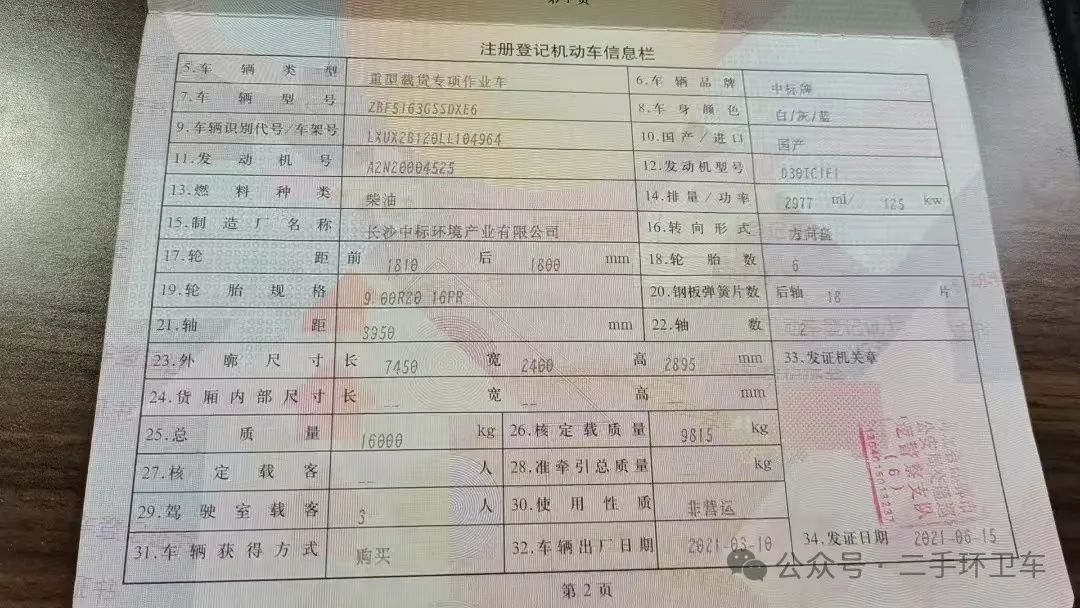 注册登记机动车信息栏
5.车辆类型 重型载货专项作业车 6.车辆品牌 中标牌
7.车辆型号 ZBF5163GSSDXE6 8.车身颜色 白/灰/蓝
9.车辆识别代号/车架号 LXUX2B120LL104964 10.国产/进口 国产
11.发动机号 A2N20004525 12.发动机型号 D30TCIF1
13.燃料种类 柴油 14.排量/功率 2977 ml/ 125 kw
15.制造厂名称 长沙中标环境产业有限公司 16.转向形式 方向盘
17.轮距 前 1810 后 1800 mm 18.轮胎数 6
19.轮胎规格 9.00R20 16PR 20.钢板弹簧片数 后轴 18 片
21.轴距 3950 mm 22.轴数 2
23.外廓尺寸 长 7450 宽 2400 高 2895 mm 33.发证机关章
24.货厢内部尺寸 长 -- 宽 -- 高 -- mm
25.总质量 16000 kg 26.核定载质量 9815 kg
27.核定载客 -- 人 28.准牵引总质量 -- kg
29.驾驶室载客 3 人 30.使用性质 非营运
31.车辆获得方式 购买 32.车辆出厂日期 2021-03-10 34.发证日期 2021-06-15
第2页
公众号·二手环卫车